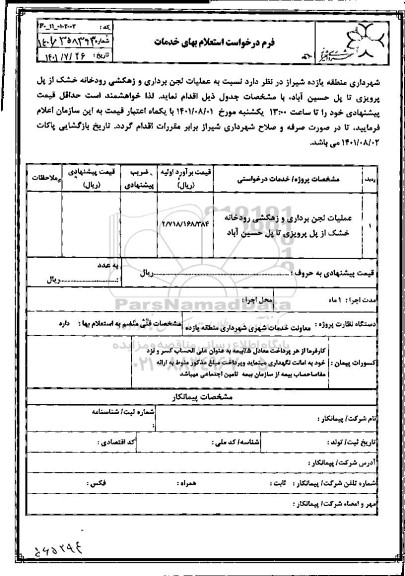 فرم درخواست استعلام بهای خدمات
کد :
شماره :
تاریخ : ۱۴۰۱/۷/۲۶
شهرداری منطقه یازده شیراز در نظر دارد نسبت به عملیات لجن برداری و زهکشی رودخانه خشک از پل
پرویزی تا پل حسین آباد، با مشخصات جدول ذیل اقدام نماید. لذا خواهشمند است حداقل قیمت
پیشنهادی خود را تا ساعت ۱۳:۰۰ یکشنبه مورخ ۱۴۰۱/۰۸/۰۱ با یکماه اعتبار قیمت به این سازمان اعلام
فرمایید، تا در صورت صرفه و صلاح شهرداری شیراز برابر مقررات اقدام گردد. تاریخ بازگشایی پاکات
۱۴۰۱/۰۸/۰۲ می باشد.
ردیف مشخصات پروژه/ خدمات درخواستی قیمت برآورد اولیه (ریال) ضریب پیشنهادی قیمت پیشنهادی (ریال) ملاحظات
۱ عملیات لجن برداری و زهکشی رودخانه خشک از پل پرویزی تا پل حسین آباد ۲/۷۱۸/۱۶۸/۲۸۴
قیمت پیشنهادی به حروف : ریال به عدد : ریال
مدت اجرا : ۱ ماه محل اجرا :
دستگاه نظارت پروژه : معاونت خدمات شهری شهرداری منطقه یازده مشخصات فنی منضم به استعلام بها : دارد
کسورات پیمان : کارفرما از هر پرداخت معادل ۵٪ بیمه به عنوان علی الحساب کسر و نزد
خود به امانت نگهداری مینماید وپرداخت مبلغ مذکور منوط به ارائه
مفاصاحساب بیمه از سازمان بیمه تامین اجتماعی میباشد
مشخصات پیمانکار
نام شرکت/ پیمانکار : شماره ثبت/ شناسنامه :
تاریخ ثبت/ تولد : شناسه/ کد ملی : کد اقتصادی :
آدرس شرکت/ پیمانکار :
شماره تلفن شرکت/ پیمانکار : ثابت : همراه : فکس :
مهر و امضاء شرکت/ پیمانکار :
ParsNamadData
پایگاه اطلاع رسانی مناقصه و مزایده